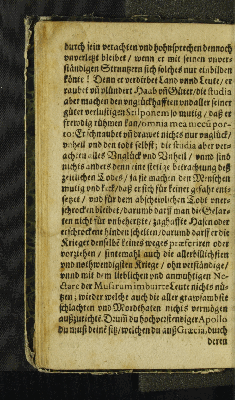 durch sein verachten vnd hohnsprechen dennoch
vnverletzt bleibet / wenn er mit seinen vnver-
ständigen Strauitzern sich solches nur einbilden
könte! Denn er verderbet Land vnnd Leute / er
raubet vñ plündert Haab vñ Güter / die studia
aber machen den vnglückhafften vnd aller seiner
güter verlustigen Stilponem so mutig / daß er
frewdig rühmen kan / omnia mea mecũ por-
to: Er schnaubet vñ drawet nichts nur vnglück /
vnheil vnd den todt selbst; die studia aber ver-
achten alles Vnglück vnd Vnheil / vnnd sind
nichts anders denn eine stetige betrachtung deß
zeitlichen Todes / ja sie machen den Menschen
mutig vnd keck / daß er sich für keiner gefahr ent-
setzet / vnd für dem abschewlichen Todt vner-
schrocken bleibet / darumb darff man die Gelar-
ten nicht für vnbehertzte / zaghaffte Hasen oder
erschrockene hinden schelten / darumb darff er die
Krieger denselbē keines weges præferiren oder
vorziehen / sintemahl auch die allerbillichsten
vnd nothwendigsten Kriege / ohn verständige /
vnnd mit dem lieblichen vnd anmuhtigen Ne-
ctare der Musarum imbuirte Leute nichts nü-
tzen; wieder welche auch die aller grawsambste
schlachten vnd Mordthaten nichts vermögen
außzurichtē. Drum̃ du hochverstendiger Apollo
du must deine sitz / welchen du auß Græcia, durch
deren